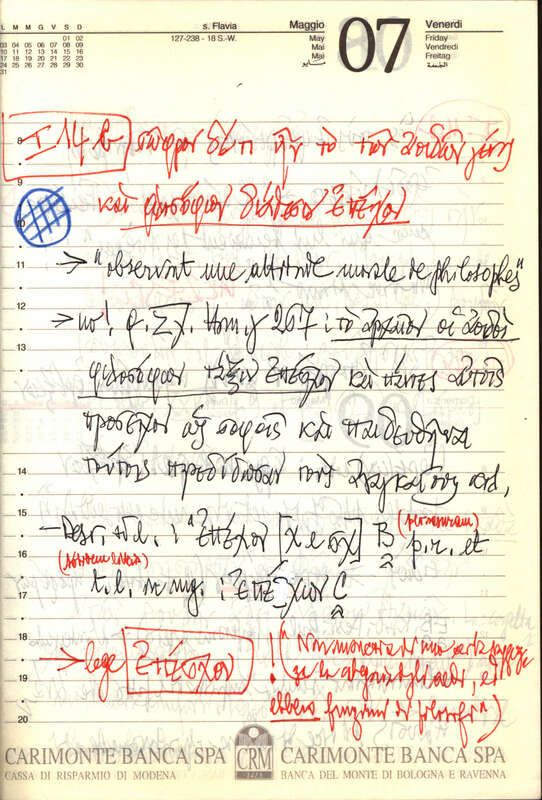 L M M G V S D
01 02
03 04 05 06 07 08 09
10 11 12 13 14 15 16
17 18 19 20 21 22 23
24 25 26 27 28 29 30
31
s. Flavia
127-238 - 18 S.-W.
Maggio
May
Mai
Mai
07
Venerdì
Friday
Vendredi
Freitag
الجمعة
8
I 14 b σῶφρον δέ τι ἦν τὸ τῶν ἀοιδῶν γένος
9
καὶ φιλοσόφων διάθεσιν ἐπέχον
10
11 → "observant une attitude morale de philosophes"
12 → no! q. Σχ. Hom. γ 267 : τὸ ἀρχαῖον οἱ ἀοιδοὶ
13
φιλοσόφων τάξιν ἐπεῖχον καὶ πάντες αὐτοῖς
προσεῖχον ὡς σοφοῖς καὶ παιδευθῆναι
14 τούτοις παρεδίδοσαν τοὺς ἀναγκαίους
15 - ἐπέχον [χ e σχ] B p.r. et
16
t.l. in mg. : C
17
18 → lege ἐπέσχον ! ("
19
20 ebbero funzioni di filosofi")
CARIMONTE BANCA SPA
CASSA DI RISPARMIO DI MODENA
CRM
CARIMONTE BANCA SPA
BANCA DEL MONTE DI BOLOGNA E RAVENNA